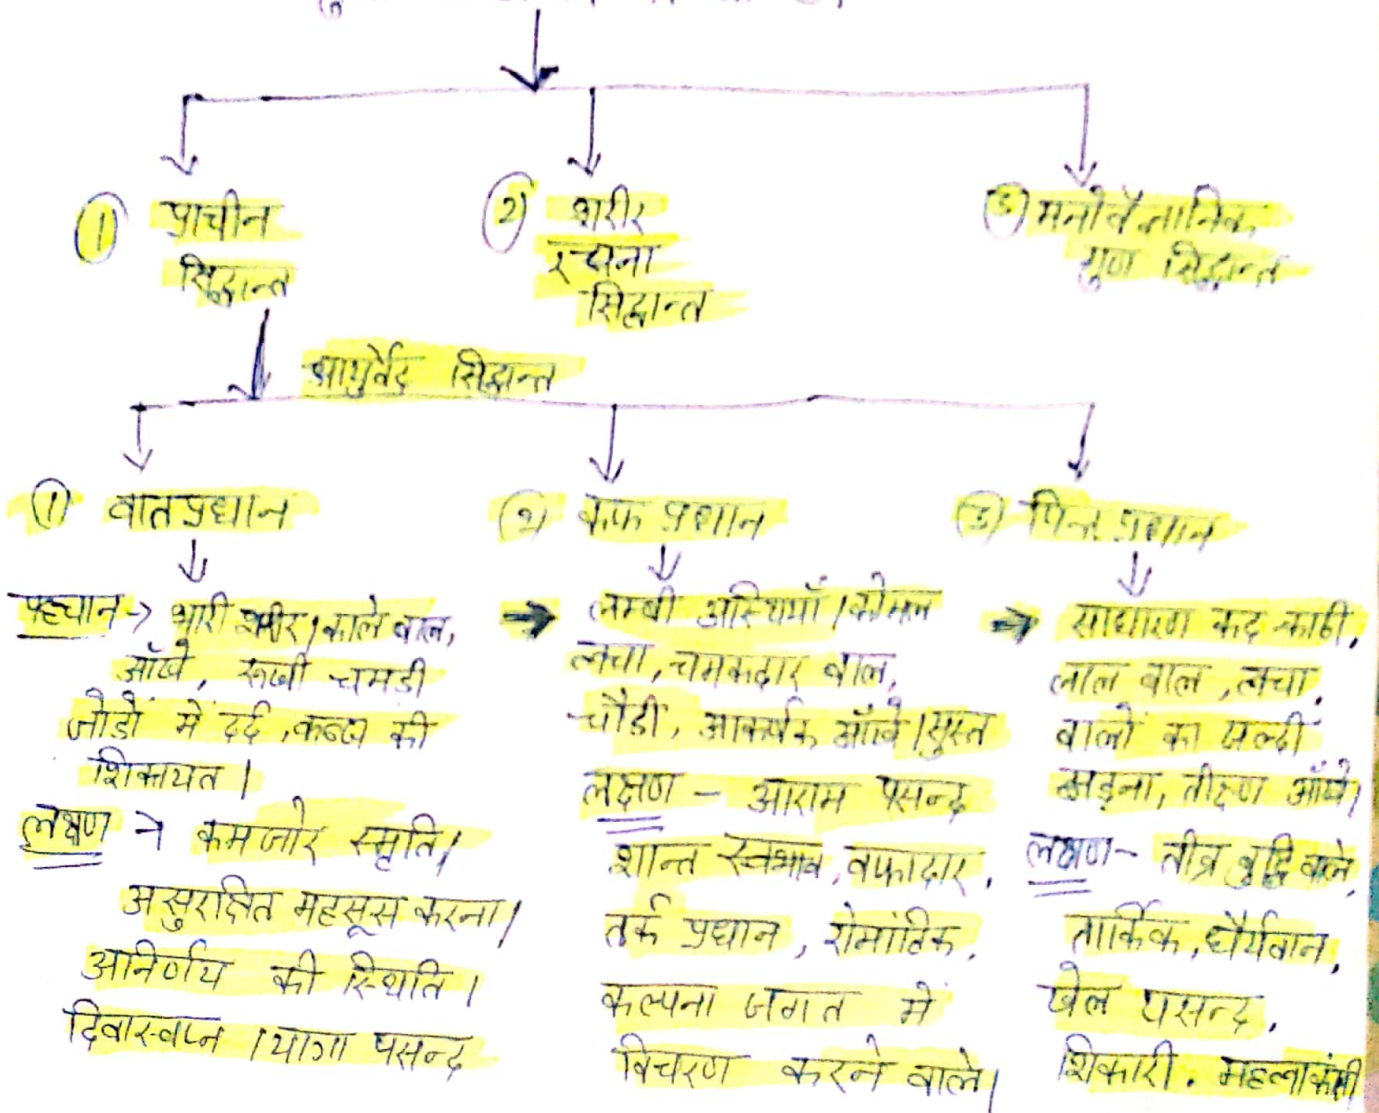 ① प्राचीन
सिद्धान्त
② शरीर
रचना
सिद्धान्त
③ मनोवैज्ञानिक
गुण सिद्धान्त
आयुर्वेद सिद्धान्त
① वातप्रधान
पहचान → भारी शरीर। काले बाल,
आँखे, रूखी चमडी
जोडों में दर्द, कब्ज की
शिकायत।
लक्षण → कमजोर स्मृति।
असुरक्षित महसूस करना।
अनिर्णय की स्थिति।
दिवास्वप्न । यागा पसन्द
② कफ प्रधान
→ लम्बी अस्थियाँ। कोमल
त्वचा, चमकदार बाल,
चौडी, आकर्षक आँखे। सुस्त
लक्षण – आराम पसन्द
शान्त स्वभाव, वफादार,
तर्क प्रधान, रोमांटिक,
कल्पना जगत में
विचरण करने वाले।
③ पित्त प्रधान
→ साधारण कद काठी,
लाल बाल, त्वचा,
बालों का जल्दी
झड़ना, तीक्ष्ण आँखे।
लक्षण – तीव्र बुद्धि वाले,
तार्किक, धैर्यवान,
खेल पसन्द,
शिकारी, महत्वाकांक्षी